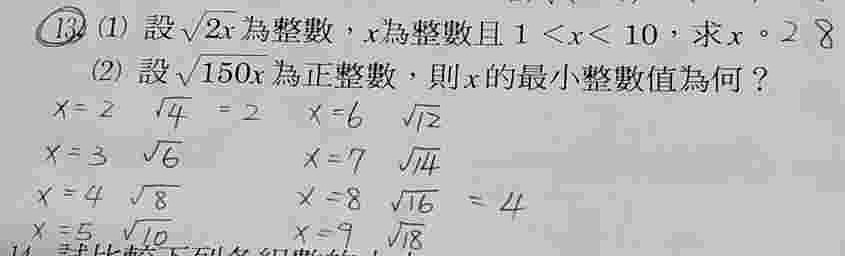 13. (1) 設√2x為整數，x為整數且 1 < x < 10，求 x。2 8
(2) 設√150x為正整數，則x的最小整數值為何？
x=2 √4 = 2 x=6 √12
x=3 √6 x=7 √14
x=4 √8 x=8 √16 = 4
x=5 √10 x=9 √18
14. 試比較下列各組數的大小